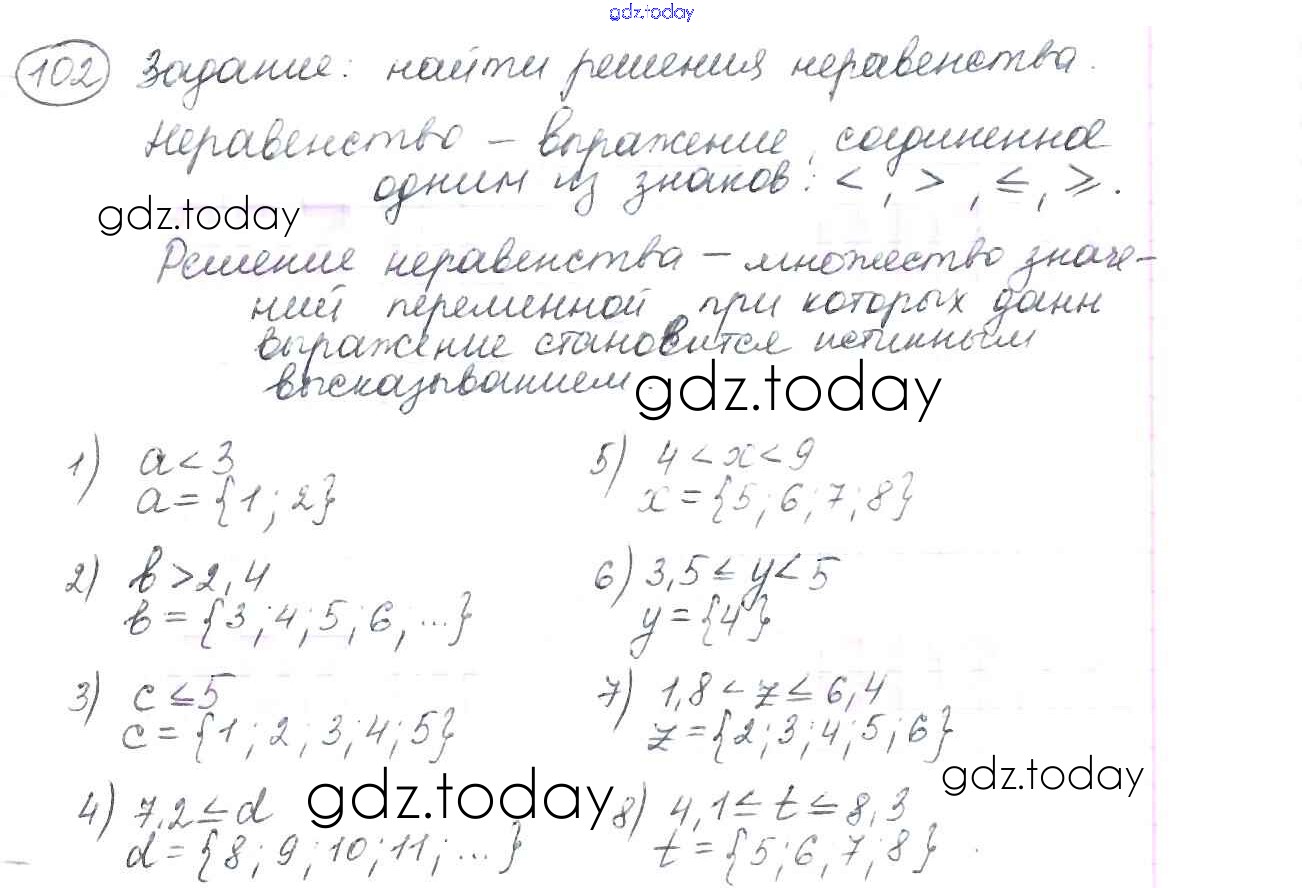 gdz.today
102 Задание: найти решения неравенства.
Неравенство – выражение, соединенное
одним из знаков: <, >, ≤, ≥.
gdz.today
Решение неравенства – множество значе-
ний переменной, при которых данн
выражение становится истинным
высказыванием.
gdz.today
1) a < 3
a = {1; 2}
2) b > 2,4
b = {3; 4; 5; 6, ...}
3) c ≤ 5
c = {1; 2; 3; 4; 5}
4) 7,2 ≤ d
d = {8; 9; 10; 11; ...}
gdz.today
5) 4 < x < 9
x = {5; 6; 7; 8}
6) 3,5 ≤ y < 5
y = {4}
7) 1,8 < z ≤ 6,4
z = {2; 3; 4; 5; 6}
gdz.today
8) 4,1 ≤ t ≤ 8,3
t = {5; 6, 7; 8}